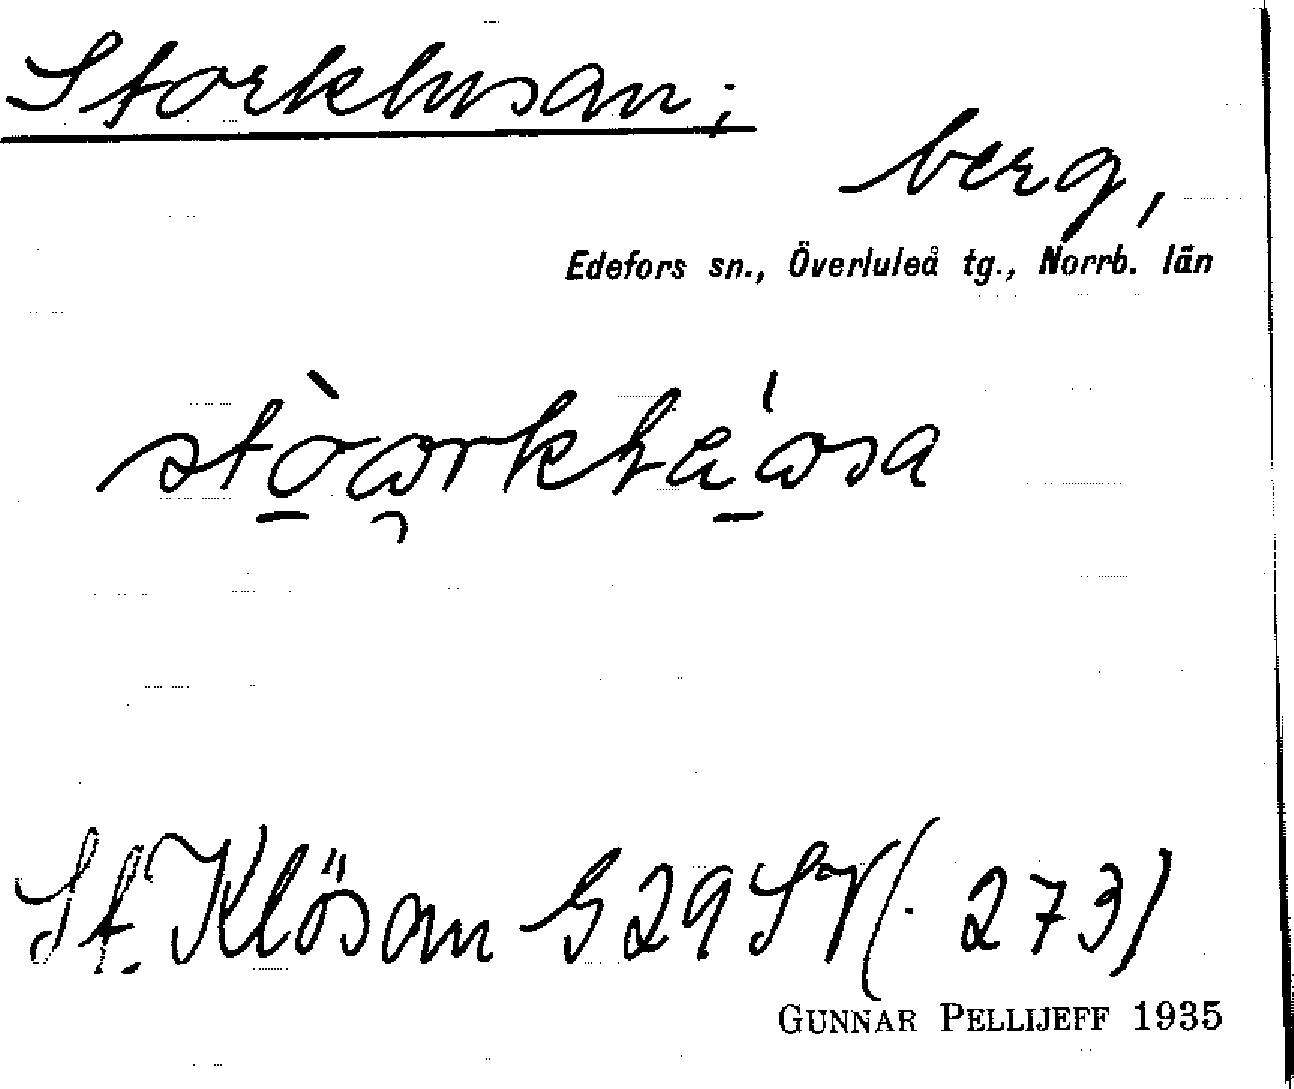 Storklusan;
berg,
Edefors sn., Överluleå tg., Norrb. län
St. Klösan G29SV (. 273)
GUNNAR PELLIJEFF 1935